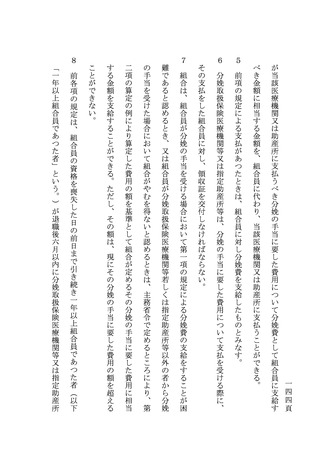 一四四頁
が当該医療機関又は助産所に支払うべき分娩の手当に要した費用について分娩費として組合員に支給す
べき金額に相当する金額を、組合員に代わり、当該医療機関又は助産所に支払うことができる。
5 前項の規定による支払があつたときは、組合員に対し分娩費を支給したものとみなす。
6 分娩取扱保険医療機関等又は指定助産所等は、分娩の手当に要した費用について支払を受ける際に、
その支払をした組合員に対し、領収証を交付しなければならない。
7 組合は、組合員が分娩の手当を受ける場合において第一項の規定による分娩費の支給をすることが困
難であると認めるとき、又は組合員が分娩取扱保険医療機関等若しくは指定助産所等以外の者から分娩
の手当を受けた場合において組合がやむを得ないと認めるときは、主務省令で定めるところにより、第
二項の算定の例により算定した費用の額を基準として組合が定めるその分娩の手当に要した費用に相当
する金額を支給することができる。ただし、その額は、現にその分娩の手当に要した費用の額を超える
ことができない。
8 前各項の規定は、組合員の資格を喪失した日の前日まで引き続き一年以上組合員であつた者(以下
「一年以上組合員であつた者」という。)が退職後六月以内に分娩取扱保険医療機関等又は指定助産所